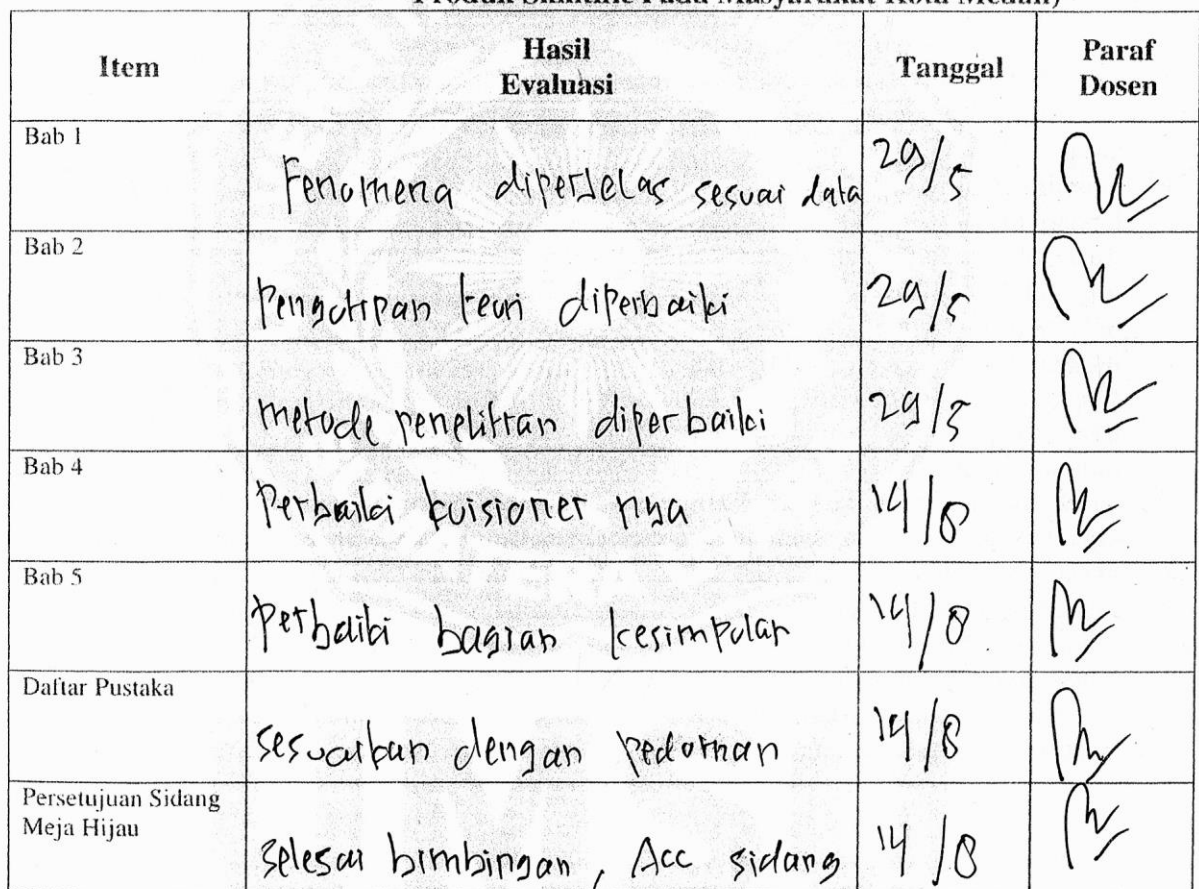 Produk Skintific Pada Masyarakat Kota Medan)
Item Hasil Evaluasi Tanggal Paraf Dosen
Bab 1
Fenomena diperjelas sesuai data 29/5
Bab 2
Pengutipan teori diperbaiki 29/5
Bab 3
metode penelitian diperbaiki 29/5
Bab 4
Perbaiki kuisioner nya 14/8
Bab 5
Perbaiki bagian kesimpulan 14/8
Daftar Pustaka
sesuaikan dengan pedoman 14/8
Persetujuan Sidang
Meja Hijau
selesai bimbingan, Acc sidang 14/8